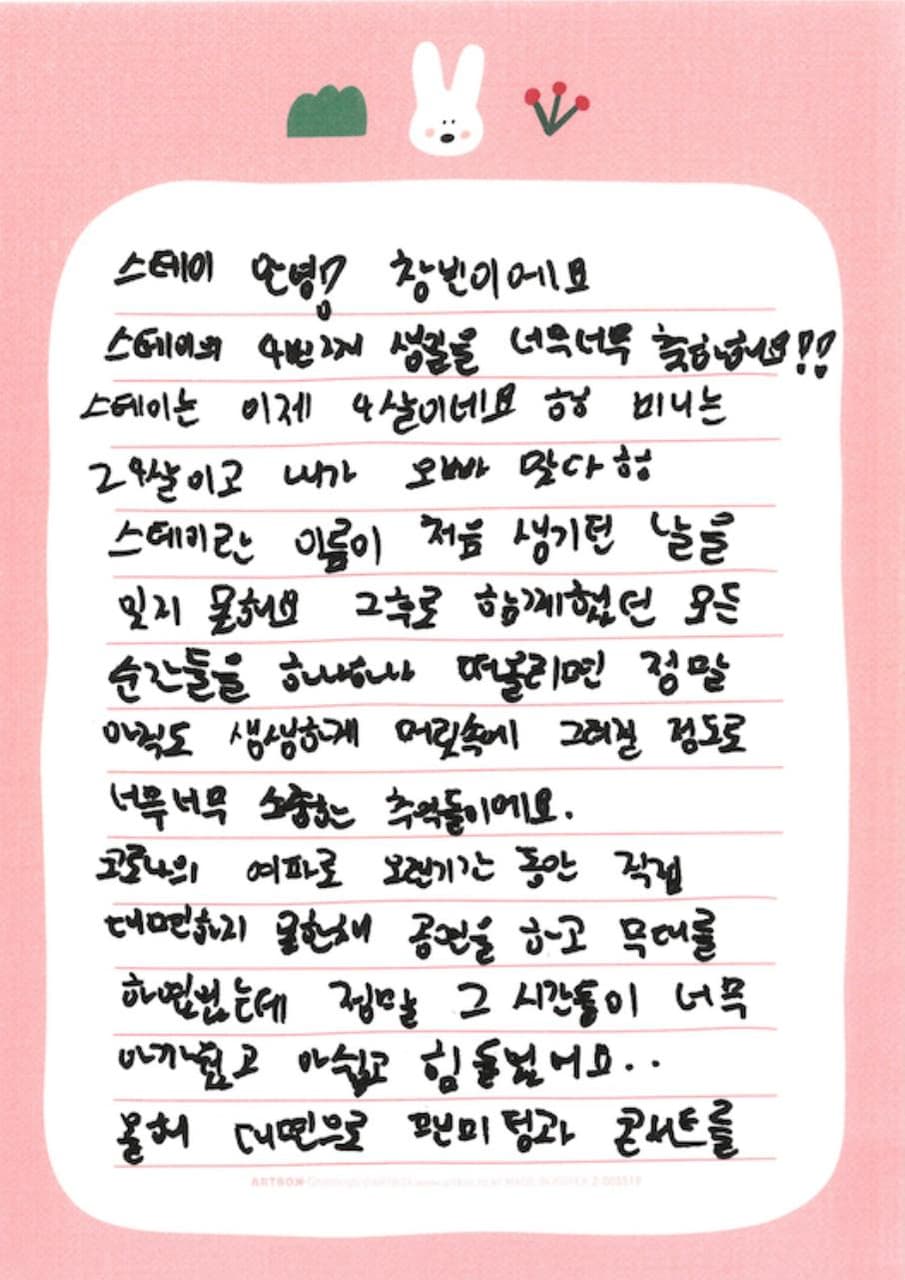 스테이 안녕!? 창빈이에요
스테이의 4번째 생일을 너무너무 축하해요!!
스테이는 이제 4살이네요 헝 미니는
24살이고 내가 오빠 맞다 헝
스테이란 이름이 처음 생기던 날을
잊지 못해요 그후로 함께했던 모든
순간들을 하나하나 떠올리면 정말
아직도 생생하게 머릿속에 그려질 정도로
너무너무 소중한 추억들이에요.
코로나의 여파로 오랜기간 동안 직접
대면하지 못한채 공연을 하고 무대를
하였었는데 정말 그 시간들이 너무
아까웠고 아쉽고 힘들었어요..
올해 대면으로 팬미팅과 콘서트를
ARTBOX